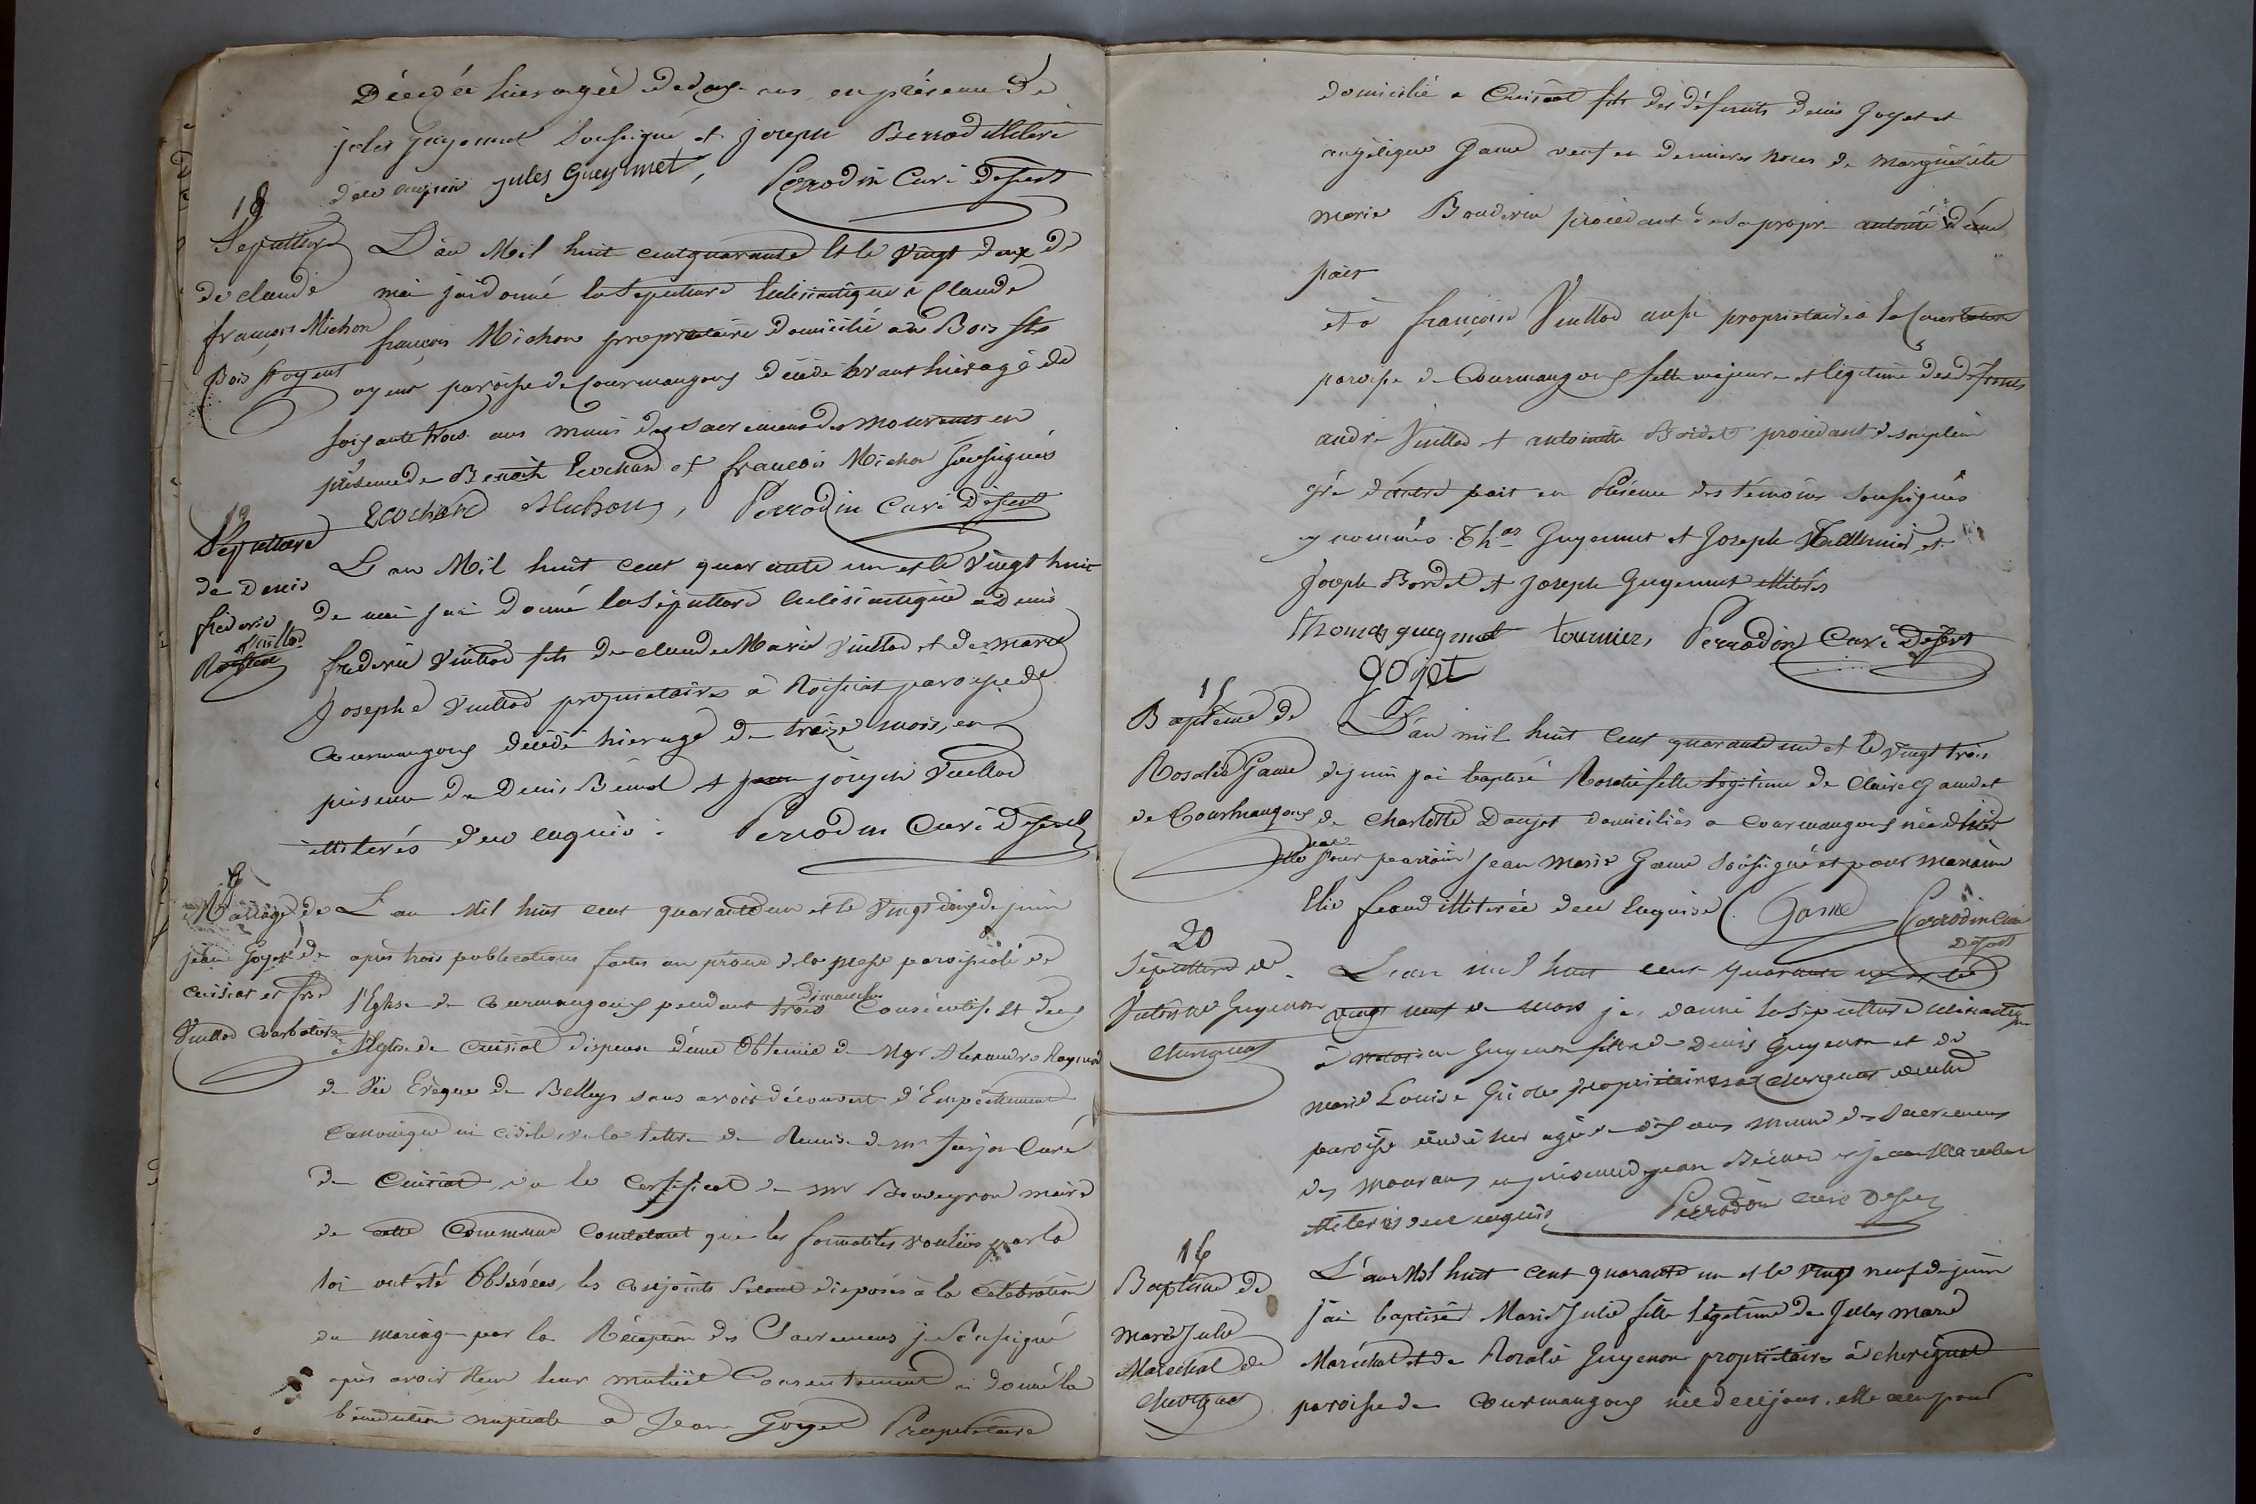 Décédée hier agée de dix ans en présence de
jules Guyennet Soussigné et joseph Benod illiteré
de ce enquis jules Gueynnet, Perrodin Curé Desst
18
Sepulture
de claude
françois Michon
Bois St oyent
L'an Mil huit cent quarante et le vingt deux de
mai jai donné la Sepulture Eclésiastique à Claude
françois Michon propriétaire domicilié au Bois St
oyent paroisse de Courmangoux décédé avant hier agé de
soixante trois ans muni des sacremens des mourrants en
présence de Benoit Ecochard et françois Michon Soussignés
Ecochard Michon, Perrodin Curé Desst
19
Sépulture
de Denis
frederic
Vuillod
Roissiat
L'an Mil huit cent quarante un et le Vingt huit
de mai jai donné la Sépulture Eclésiastique a denis
frederic Vuillod fils de claude Marie Vuillod et de marie
Josephe Vuillod propriétaires à Roissiat paroisse de
Courmangoux décédé hier agé de treize mois, en
présence de Denis Benod et joseph Vuillod
illiterés de ce enquis. Perrodin Curé Desst
6
Mariage de
jean Goyet de
cuisiat et fse
Vuillod Courbatière
L'an Mil huit cent quarante un et le Vingt deux de juin
après trois publications faites au prône de la messe paroissiale de
l'Eglise de Courmangoux pendant trois Dimanches Consécutifs et de
l'Eglise de Cuisiat dispense d'une Obtenue de Mgr Alexandre Raymond
de Vie Evêque de Belley sans avoir découvert d'Empêchement
Canonique ni civile, vu la lettre de Remise de mr Curé
de Cuisiat vu le Certificat de mr Bouveyron maire
de cette Commune Constatant que les formalités voulues par la
loi ont été Observées, les conjoints s'étant disposés à la célébration
du mariage par la Réception des Sacremens je Soussigné
après avoir Reçu leur mutuel Consentement ai donné la
bénédiction nuptiale a Jean Goyet Propriétaire
domicilié a Cuisiat fils des défunts Denis Goyet et
angélique Game veuf en dernières noces de marguerite
marie Bouderin procédant de sa propre autorité d'une
part
et à françoise Vuillod aussi propriétaire à la Courbatière
paroisse de Courmangoux fille majeure et légitime des défunts
andré Vuillod et antoinette Bordet procédant de son plein
gré d'autre part en Présence des témoins Soussignés
y nommés Thas Guyennet et Joseph Tournier et
Joseph Bordet et Joseph Guyennet illitérés
thomas guyennet tournier, Perrodin Curé Desst
gojet
15
Baptême de
Rosalie Game
de Courmangoux
L'an mil huit cent quarante un et le Vingt trois
de juin j'ai baptisé Rosalie fille légitime de Claire Game et
de Charlotte Danjot domiciliés a Courmangoux née d'hier
elle a eu pour parrain Jean Marie Game Soussigné et pour maraine
Elie feaud illiterée de ce enquise. Game Perrodin Curé
Desst
20
Sépulture de
Guyenon
cherignat
L'an mil huit cent quarante un et le
vingt neuf de mars j'ai donné la Sépulture eclésiastique
à Guyenon fille de Denis Guyenon et de
marie Louise Pirole propriétaires a cherignat de cette
paroisse décédée hier agée de dix ans munie des Sacremens
des mourans en présence de jean Bénod et jean Marechal
illiterés de ce enquis Perrodin curé Desst
16
Baptême de
marie Julie
Maréchal de
cherignat
L'an Mil huit cent quarante un et le vingt neuf de juin
j'ai baptisé Marie Julie fille légitime de Jules marie
Maréchal et de Rosalie Guyenon propriétaires à cherignat
paroisse de Courmangoux née de ce jour. elle a eu pour